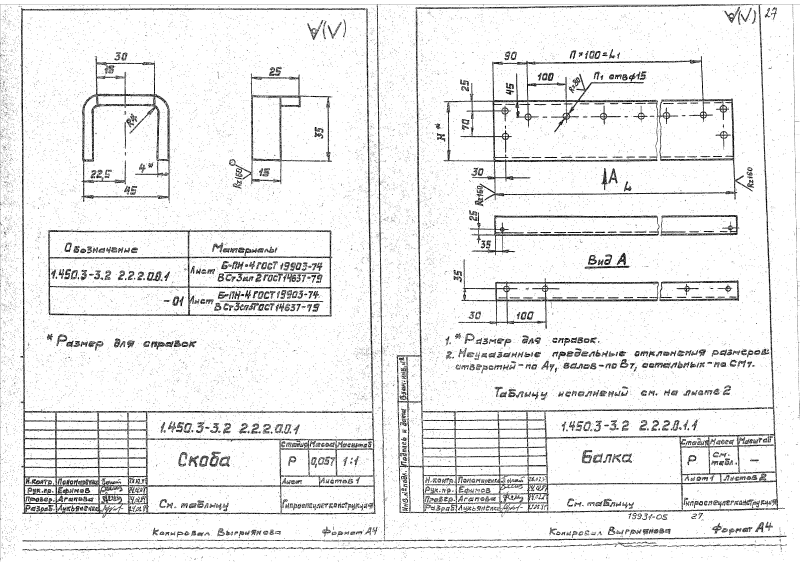 27
30
15
R4
4*
22,5
45
25
35
15
Rz160
Обозначение Материалы
1.450.3-3.2 2.2.2.0.0.1 Лист Б-ПН-4 ГОСТ 19903-74
В Ст3кп2 ГОСТ 14637-79
-01 Лист Б-ПН-4 ГОСТ 19903-74
ГОСТ 14637-79
* Размер для справок
1.450.3-3.2 2.2.2.0.0.1
Скоба
Стадия Масса Масштаб
Р 0,057 1:1
Лист Листов 1
Н.контр.
Рук.пр. Ефимов
Провер. Агапова
Разраб. Лукьяненко
См. таблицу
Гипроспецлегконструкция
Копировал Выгрианова Формат А4
90
п×100=L1
100
п1 отв ф15
45
25
70
Н*
30
А
L
Rz160
Rz160
25
35
Вид А
35
30
100
1. * Размер для справок.
2. Неуказанные предельные отклонения размеров:
отверстий-по А7, валов-по В7, остальных-по СМ7.
Таблицу исполнений см. на листе 2
Инв.№подл. Подпись и дата Взам.инв.№
1.450.3-3.2 2.2.2.0.1.1
Балка
Стадия Масса Масштаб
Р см. табл. —
Лист 1 Листов 2
Н.контр.
Рук.пр. Ефимов
Провер. Агапова
Разраб. Лукьяненко
См. таблицу
Гипроспецлегконструкция
19931-05 27
Копировал Выгрианова Формат А4